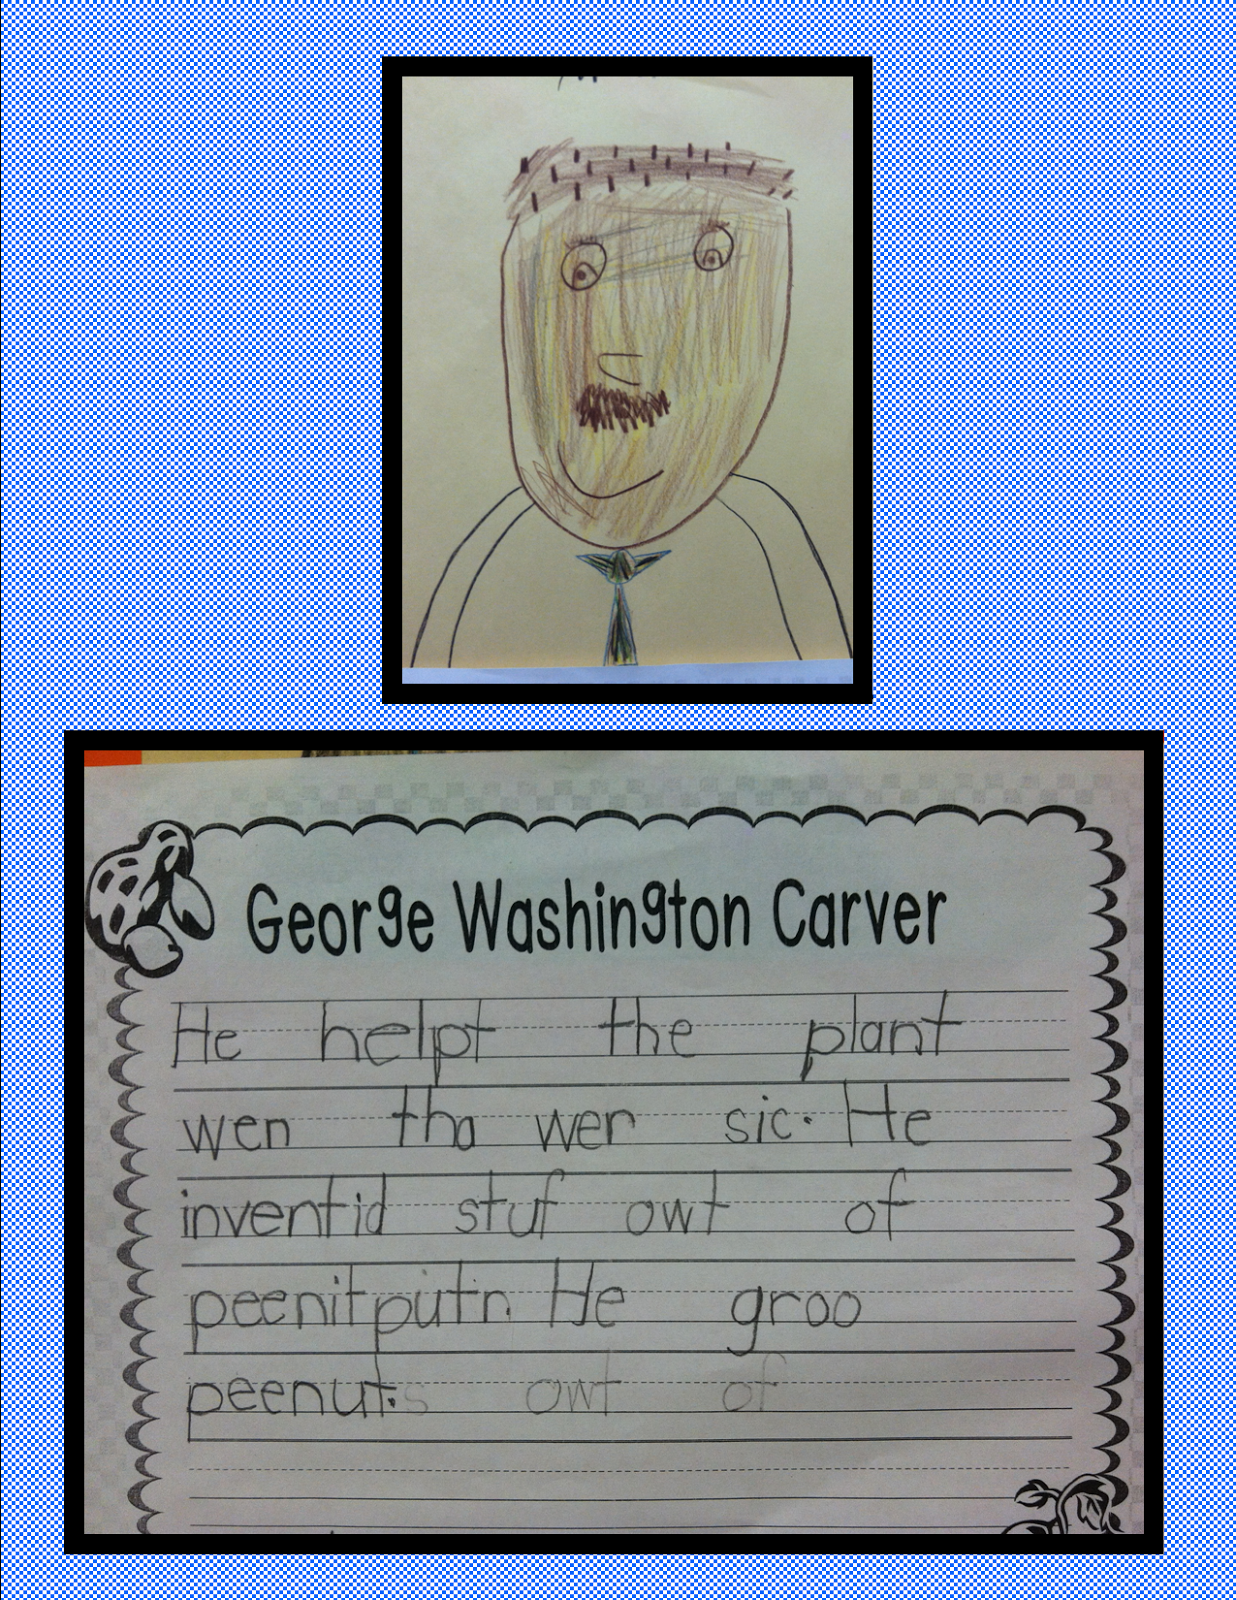 George Washington Carver
He helpt the plant
wen tha wer sic. He
inventid stuf owt of
peenitputr. He groo
peenut.s owt of